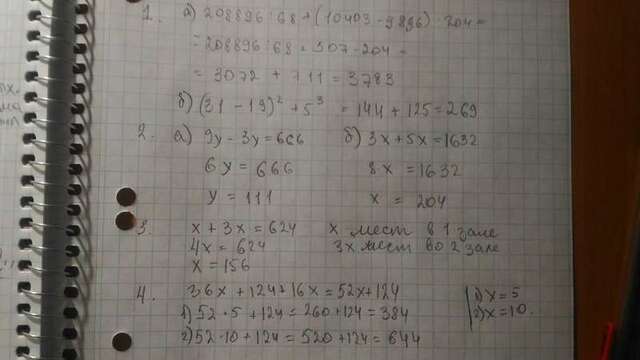 1. а) 208896 : 68 + (10403 - 9896) · 204 =
= 208896 : 68 + 507 - 204 =
= 3072 + 711 = 3783
б) (31 - 19)² + 5³ = 144 + 125 = 269
2. а) 9y - 3y = 666 б) 3x + 5x = 1632
6y = 666 8x = 1632
y = 111 x = 204
3. x + 3x = 624 x мест в 1 зале
4x = 624 3x мест во 2 зале
x = 156
4. 36x + 124 + 16x = 52x + 124 1) x = 5
1) 52 · 5 + 124 = 260 + 124 = 384 2) x = 10.
2) 52 · 10 + 124 = 520 + 124 = 644